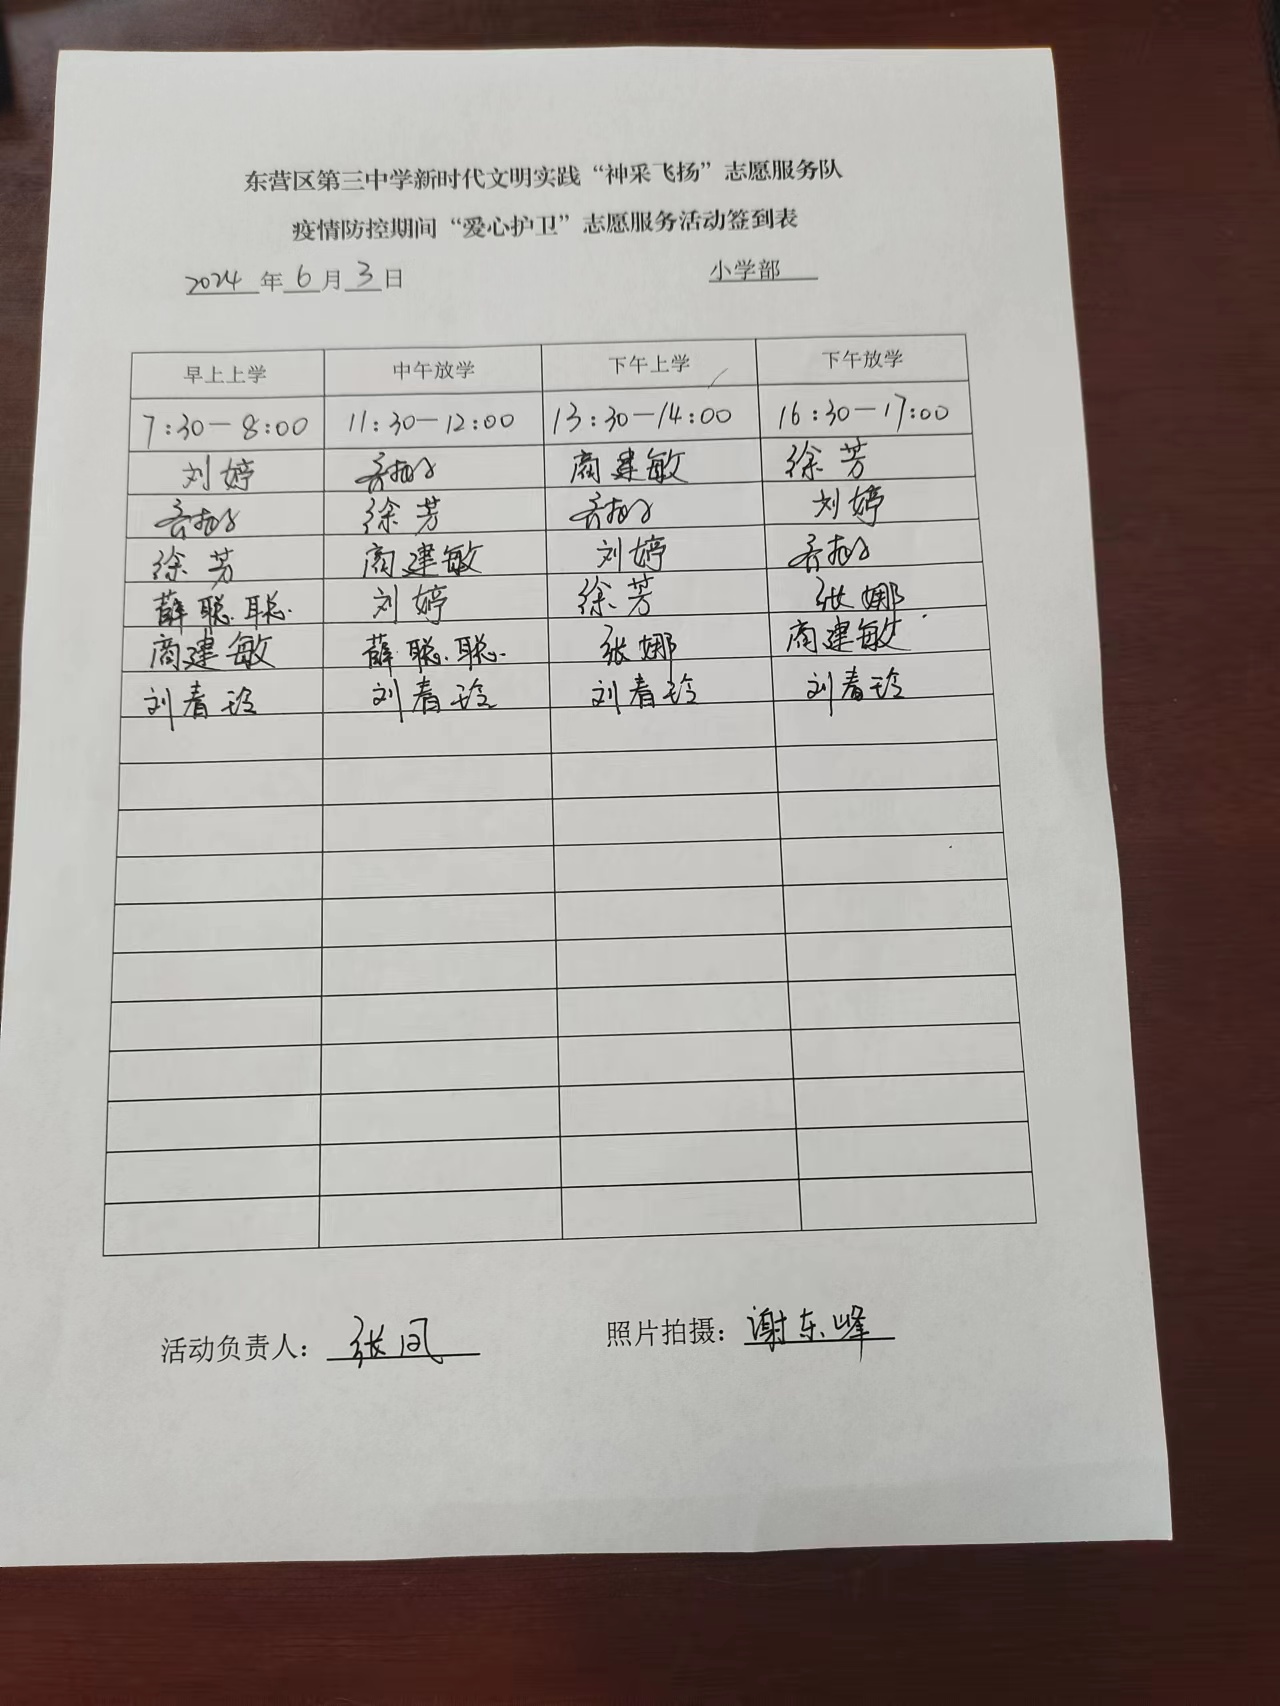 东营区第三中学新时代文明实践“神采飞扬”志愿服务队
疫情防控期间“爱心护卫”志愿服务活动签到表
2024 年 6 月 3 日 小学部
早上上学 中午放学 下午上学 下午放学
7:30-8:00 11:30-12:00 13:30-14:00 16:30-17:00
刘婷 商建敏 徐芳
徐芳 刘婷
徐芳 商建敏 刘婷
薛聪聪 刘婷 徐芳 张娜
商建敏 薛聪聪 张娜 商建敏
刘春玲 刘春玲 刘春玲 刘春玲
活动负责人: 张凤 照片拍摄: 谢东峰